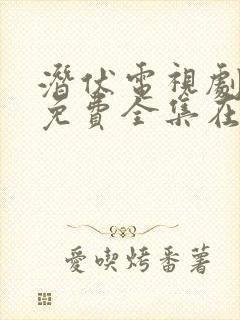 潛伏電視劇
免費全集在
愛喫烤番薯